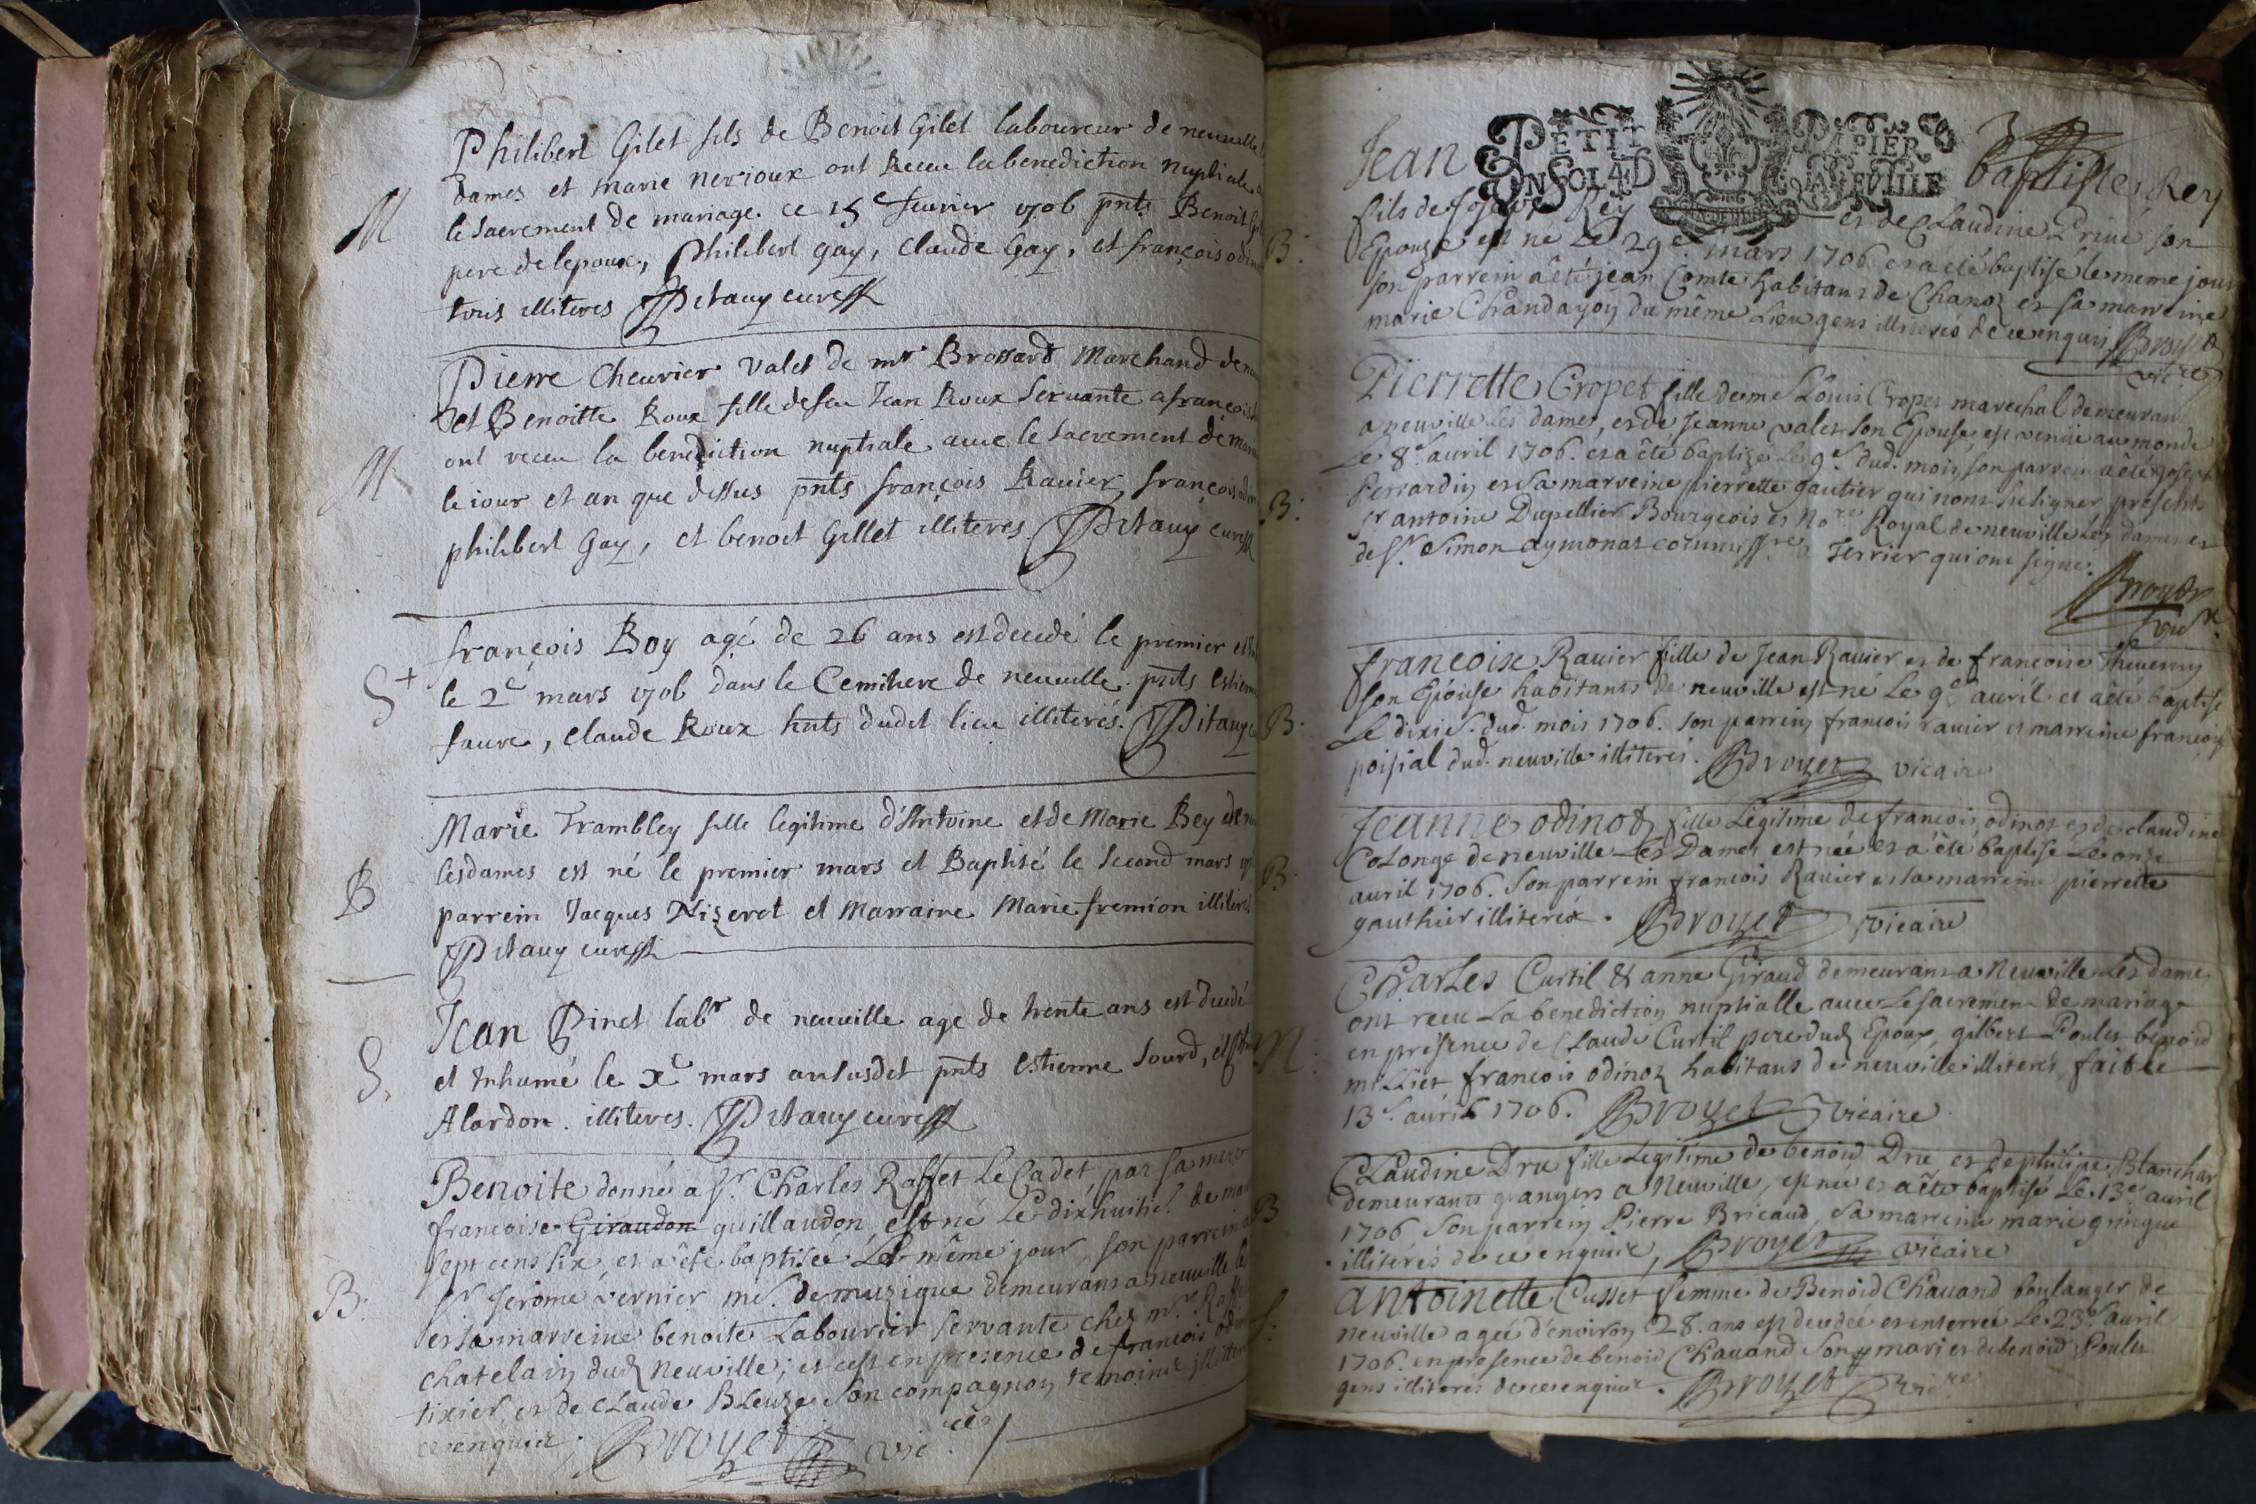 Philibert Gilet fils de Benoit Gilet laboureur de neuuille
dames et marie nerioux ont Receu la benediction nuptiale
M
le sacrement de mariage. ce 15e feurier 1706 pnts Benoit
pere de lepoux, Philibert gay, Claude Gay, et françois
tous illiteres Pitauy curé
Pierre Cheurier valet de mr Brossard Marchand de
et Benoitte Roux fille defeu Jean Roux Seruante a françois
ont receu la benediction nuptiale auec le sacrement de
M
le iour et an que dessus pnts françois Rauier, françois
philibert Gay, et benoit Gillet illiteres. Pitauy curé
françois Boy agé de 26 ans est decedé le premier et
S+
le 2e mars 1706 dans le Cemitiere de neuuille. pnts estienne
faure, Claude Roux hnts dudit lieu illiterés. Pitauy
Marie Trambley fille legitime d'Antoine et de Marie Bey de
lesdames est né le premier mars et Baptisé le second mars
B
parrein Jacques Nizeret et Marraine Marie fremion illiteres
Pitauy curé
Jean Pinet labr de neuuille age de trente ans est decedé
S.
et Inhumé le Xe mars an susdet pnts estienne Sourd, et
Alardon. illiteres. Pitauy curé
Benoite donné a Sr. Charles Raffet Le Cadet, par sa mere
francoise Giraudon guillaudon, est né Le dixhuitie. de
sept cens six, et a êté baptisée Le même jour, son parrein
B.
Sr Jerome vernier me. de muzique demeurans a neuuille
et sa marreine benoite Labourier servante chez mr.
chatelain dud neuuille; et cest en presence de francois
tixier, et de claude Bleuze son compagnon temoins
ce enquis; Broyet vic.
PETIT PAPIER
UN SOL 4D LA FEUILLE
Jean baptiste Rey
fils de Joseph Rey et de claudine Privé son
B:
Epouse est né Le 29e mars 1706 et a eté baptisé le meme jour
son parrein a êté jean Comte habitans de Chanoz et sa marreine
marie Chandayon du même Lieu gens illiteres de ce enquis Broyet
vicre
Pierrette Cropet fille de me Louis Cropet marechal demeuran
a neuville Les dames, et de Jeanne valet son Epouse, est venüe au monde
Le 8e. avril 1706. et a êté baptizé Le 9e. dud. mois, son parrein a êté Joseph
perrardin et sa marreine pierrette gautier qui n'ont sú signer presents
B:
Sr antoine Dupellier Bourgeois et Nore Royal de neuville Les dames et
de Sr. Simon aymonat commissre a Terrier qui ont signé.
Broyet
vic
francoise Rauier fille de Jean Rauier et de francoise Theuenin
son Epouse habitants de neuville est né Le 9e avril et a êté baptisé
B.
Le dixie. dud. mois 1706. son parrein francois rauier et marreine francoise
poisial dud. neuville illiteres. Broyet vicaire
Jeanne odinot fille Légitime de francois odinot et de claudine
Colonge de neuville Les Dames est née et a êté baptisé Le onze
B.
avril 1706. Son parrein francois Rauier et sa marreine pierrette
gauthier illiterés. Broyet vicaire
Charles Curtil & anne Giraud demeurans a Neuville Les Dames
ont recu La benediction nuptialle avec Le sacrement de mariage
M:
en présence de Claude Curtil pere dud Epoux, gilbert Poulet benoid
milliet francois odinot habitans de neuville illiteres, fait Le
13e. avril 1706. Broyet vicaire
Claudine Dru fille Légitime de benoid Dru et de philipe Blanchar
demeurants grangers a Neuville, est née et a êté baptisé Le 13e avril
B
1706 Son parrein Pierre Bricaud, sa marreine marie gringue
illitérés de ce enquis, Broyet vicaire
antoinette Cusset femme de Benoid Chauand boulanger de
S.
neuville agée d'environ 28. ans est decedée et enterrée Le 23e avril
1706. en presence de benoid Chauand Son mari et de benoid Poulet
gens illiteres de ce enquis. Broyet vicre